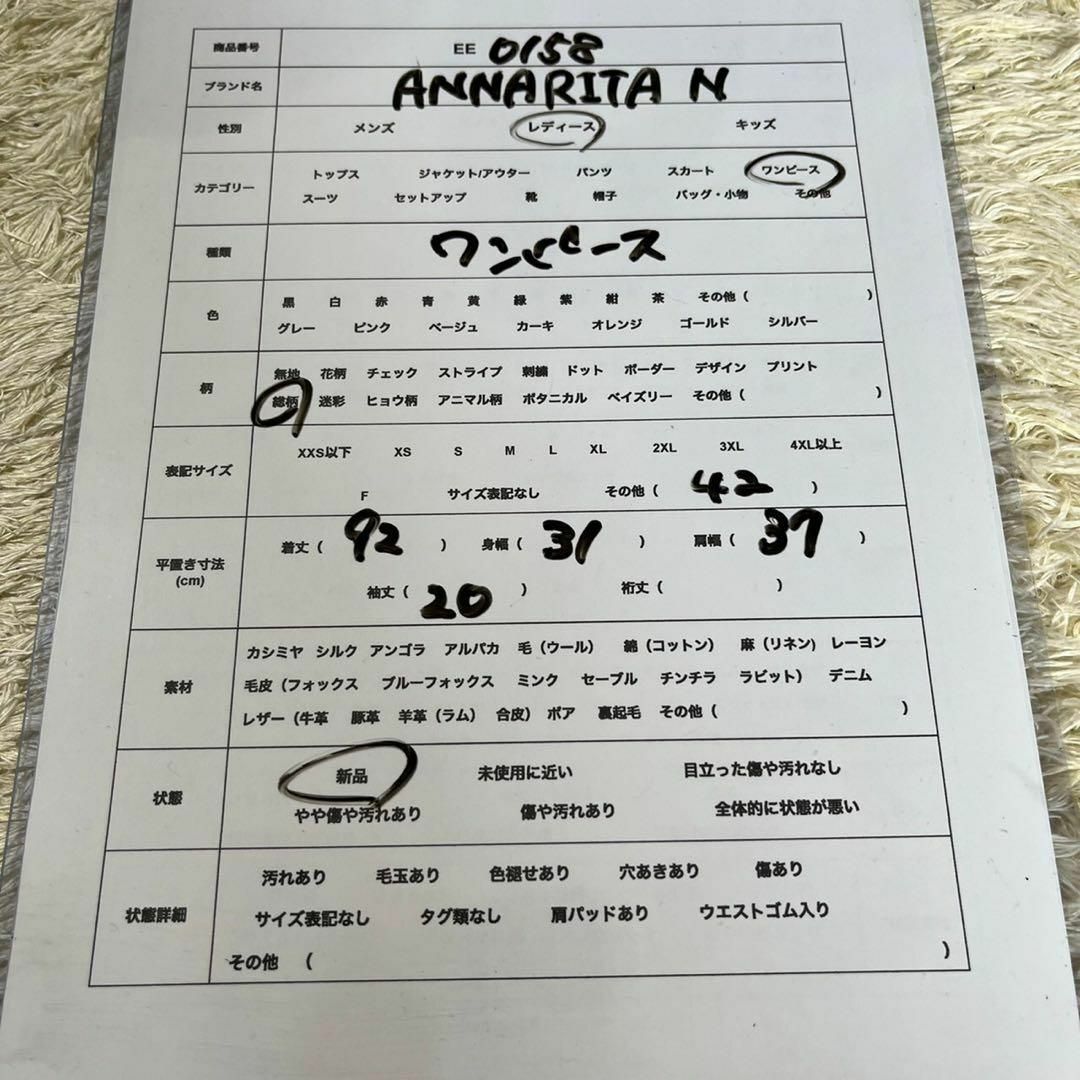 商品番号 EE 0158
ブランド名 ANNARITA N
性別 メンズ レディース キッズ
カテゴリー トップス ジャケット/アウター パンツ スカート ワンピース
スーツ セットアップ 靴 帽子 バッグ・小物 その他
種類 ワンピース
色 黒 白 赤 青 黄 緑 紫 紺 茶 その他( )
グレー ピンク ベージュ カーキ オレンジ ゴールド シルバー
柄 無地 花柄 チェック ストライプ 刺繍 ドット ボーダー デザイン プリント
総柄 迷彩 ヒョウ柄 アニマル柄 ボタニカル ペイズリー その他( )
表記サイズ XXS以下 XS S M L XL 2XL 3XL 4XL以上
F サイズ表記なし その他( 42 )
平置き寸法 (cm) 着丈( 92 ) 身幅( 31 ) 肩幅( 37 )
袖丈( 20 ) 裄丈( )
素材 カシミヤ シルク アンゴラ アルパカ 毛(ウール) 綿(コットン) 麻(リネン) レーヨン
毛皮(フォックス ブルーフォックス ミンク セーブル チンチラ ラビット) デニム
レザー(牛革 豚革 羊革(ラム) 合皮) ボア 裏起毛 その他( )
状態 新品 未使用に近い 目立った傷や汚れなし
やや傷や汚れあり 傷や汚れあり 全体的に状態が悪い
状態詳細 汚れあり 毛玉あり 色褪せあり 穴あきあり 傷あり
サイズ表記なし タグ類なし 肩パッドあり ウエストゴム入り
その他 ( )